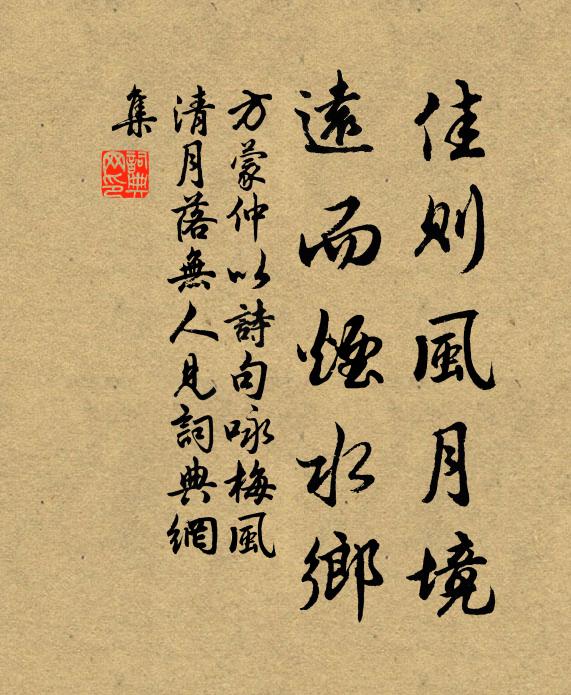 佳則風月境
遠而煙水鄉
方蒙仲以詩句咏梅風
清月落無人見詞典網
集
詞典網印